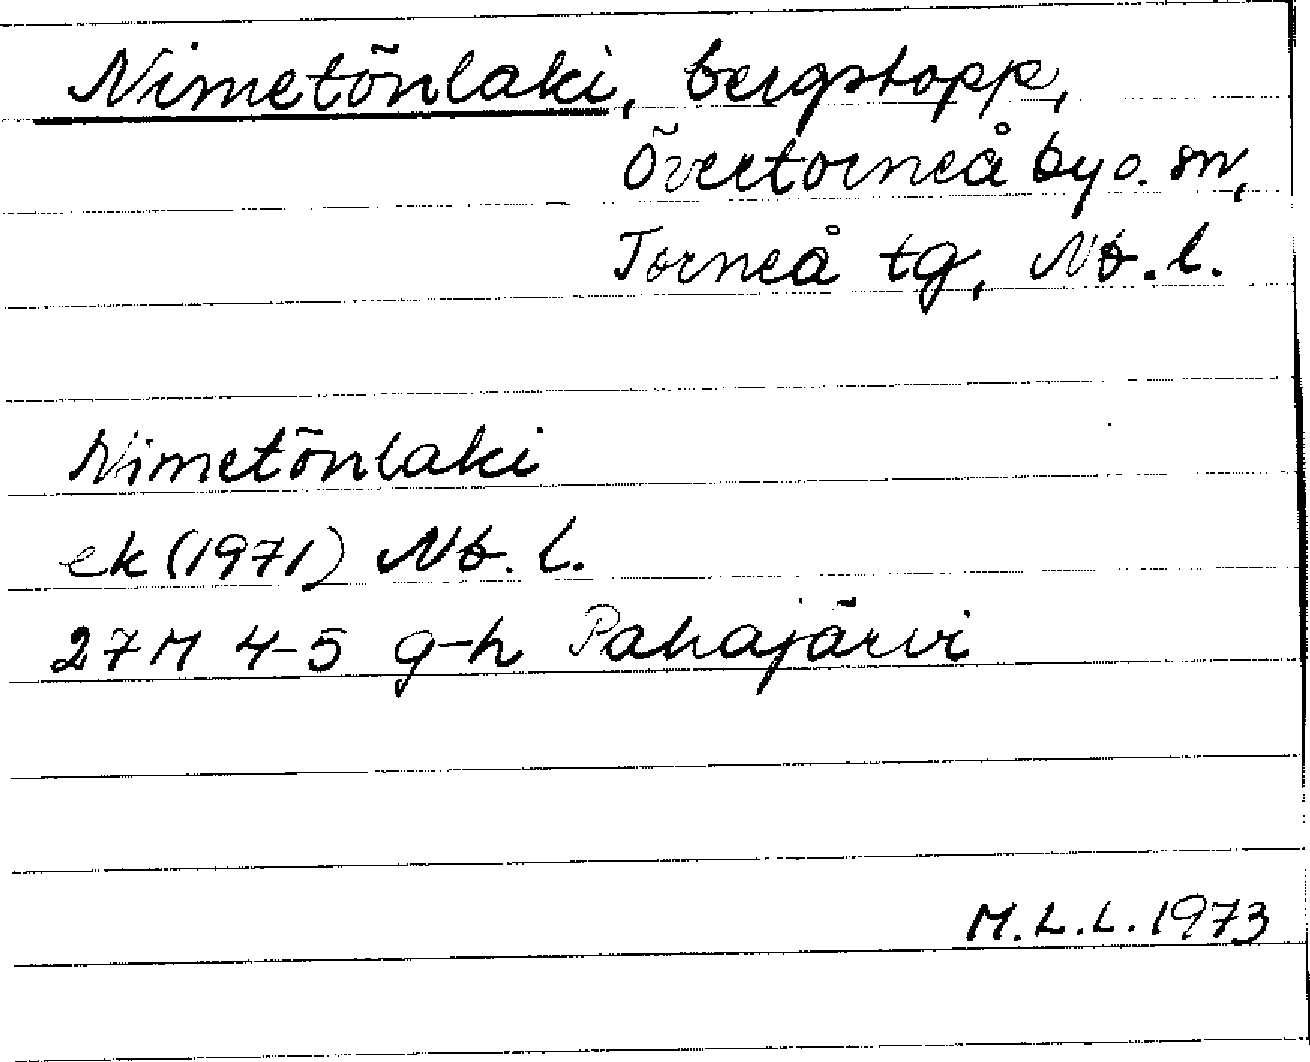 Nimetönlaki, bergstopp,
Övertorneå by o. sn,
Torneå tg, Nb. l.
Nimetönlaki
ek (1971) Nb. l.
27M 4-5 g-h Pahajärvi
M.L.L. 1973